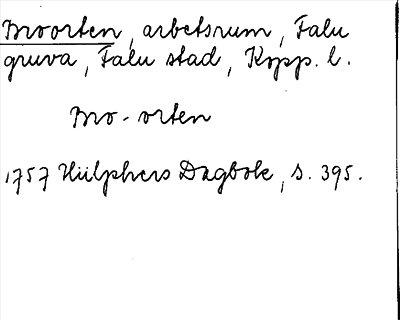 Broorten, arbetsrum, Falu
gruva, Falu stad, Kopp. l.
Bro-orten
1757 Hülphers Dagbok, s. 395.